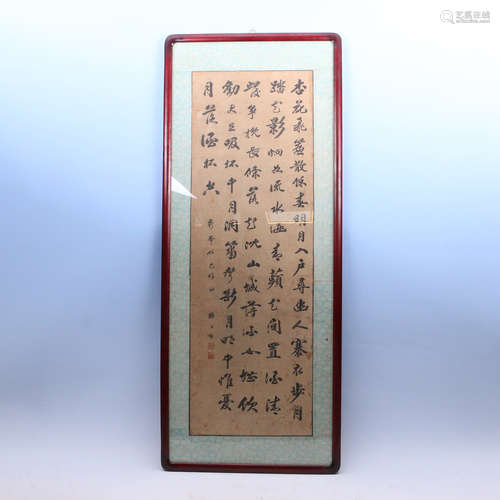 杏花飛簾散餘春明月入戶尋幽人褰衣步月
踏花影炯如流水涵青蘋花間置酒清
發爭挽長條落山城薄酒飲
勸君且吸杯中月洞簫聲斷月明中惟憂
月落酒杯空
艺狐在线